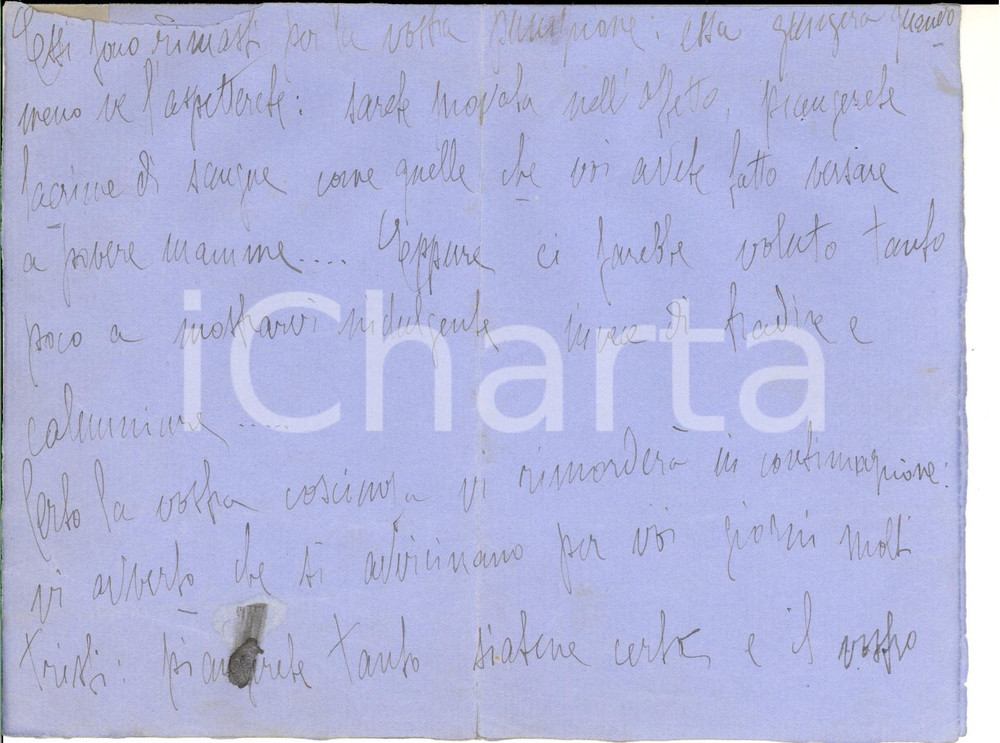 Essi sono rimasti per la vostra punizione: essa giungerà quando
meno ve l'aspetterete: sarete provata nell'affetto, piangerete
lacrime di sangue come quelle che voi avete fatto versare
a povere mamme.... Eppure ci sarebbe voluto tanto
poco a mostrarvi indulgente invece di tradire e
calunniare .....
Certo la vostra coscienza vi rimorderà in continuazione:
vi avverto che si avvicinano per voi giorni molti
tristi: piangerete tanto siatene certa, e il vostro
iCharta